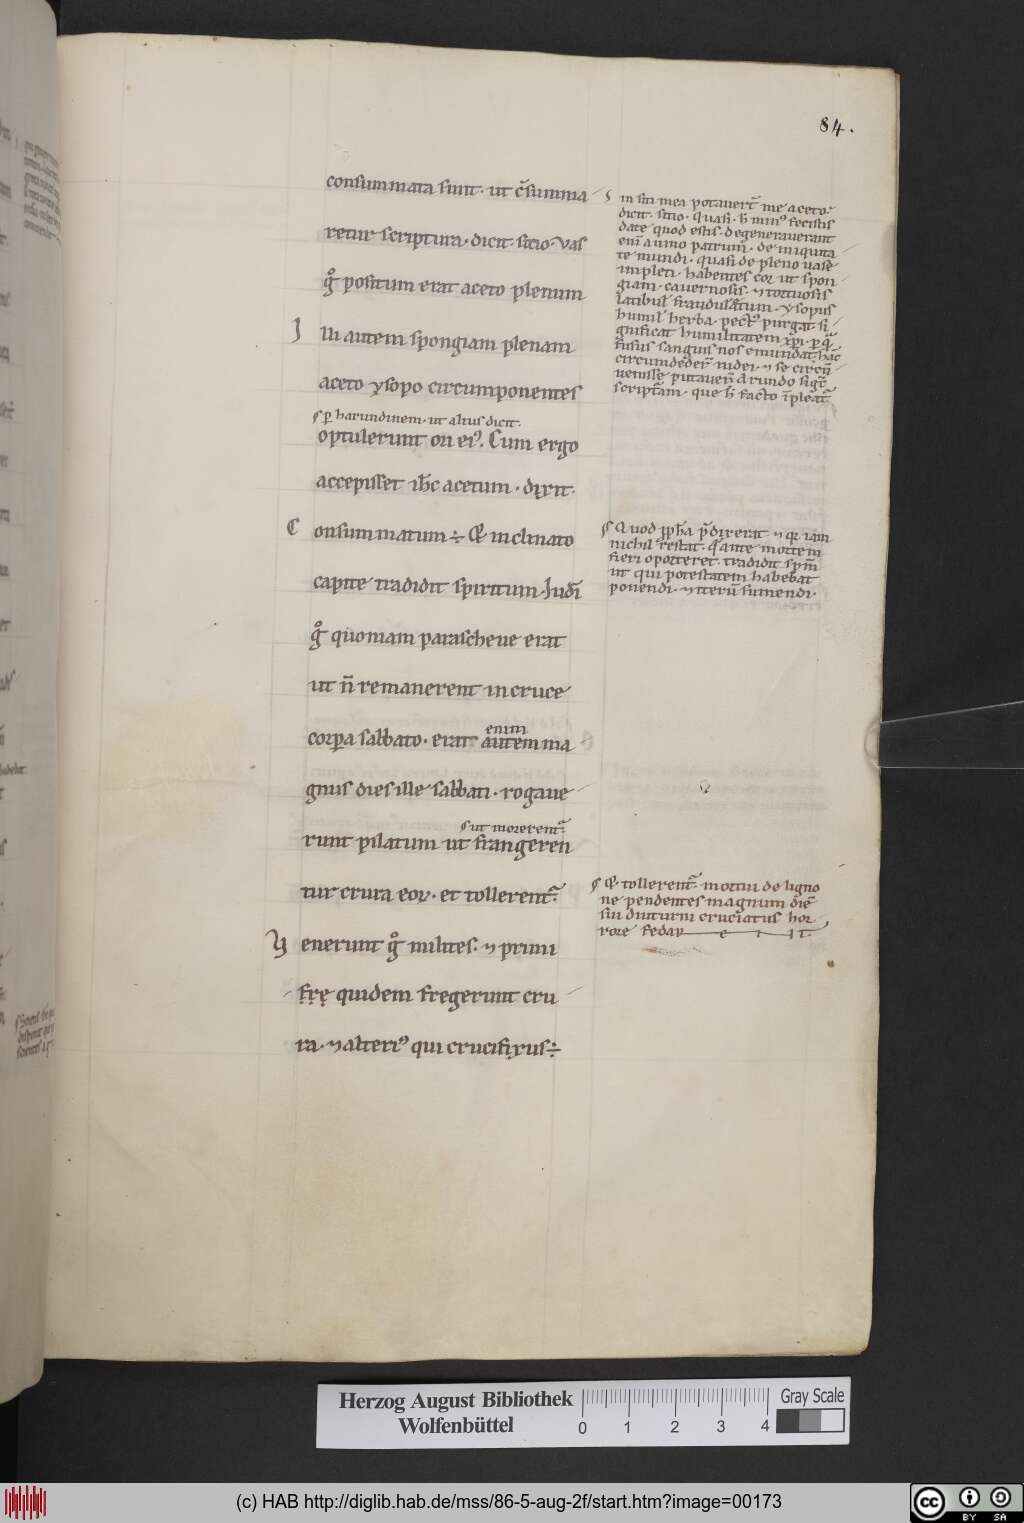 84.
consummata sunt · ut c̄summa
retur scriptura · dicit · sitio · vas
g̊ positum erat aceto plenum
Illi autem spongiam plenam
aceto ysopo circumponentes
ꝑ harundinem · ut alius dicit ·
optulerunt ori ei⁹. Cum ergo
accepisset ih̄c acetum · dixit ·
Consummatum ÷ Et inclinato
capite tradidit spiritum · Iudēi
g̊ quoniam parascheue erat
ut n̄ remanerent in cruce
corpora sabbato · erat autem ma
enim
gnus dies ille sabbati · rogaue
sut morerent᷑
runt pilatum ut frangeren
tur crura eoꝝ · et tollerent᷑ ·
Venerunt g̊ milites · ⁊ primi
frę quidem fregerunt cru
ra · ⁊ alteri⁹ qui crucifixus ÷
in siti mea potauer̄t me aceto ·
dicit · sitio · quasi · h̄ min⁹ fecistis
date quod estis · degenerauerant
eni᷑ a uino patrum · de iniquita
te mundi · quasi de pleno uase
impleti · habentes cor ut spon
giam · cauernosis · ⁊ tortuosis
latibul᷑ fraudulētum · ysopus
humil᷑ herba · pect⁹ purgat · si
gnificat humilitatem xp̄i · ꝑ quā
fusus sanguis nos emundat · hāc
circumdeder̄ iudei · ⁊ se circū
uenisse putauer̄ Arundo sigt᷑
scriptam · que h̄ facto īpleat᷑
Quod ꝓph̄a p̄dixerat ⁊ qr̄ iam
nichil restat · q̄ ante mortem
fieri oporteret · tradidit spm̄
ut qui potestatem habebat
ponendi · ⁊ iterū sumendi ·
Et tollerent᷑ · mortui de ligno
ne pendentes magnum diē
sui diuturni cruciatus hor
rore fedar e n t
Herzog August Bibliothek
Wolfenbüttel
0 1 2 3 4
Gray Scale
(c) HAB http://diglib.hab.de/mss/86-5-aug-2f/start.htm?image=00173
cc BY SA